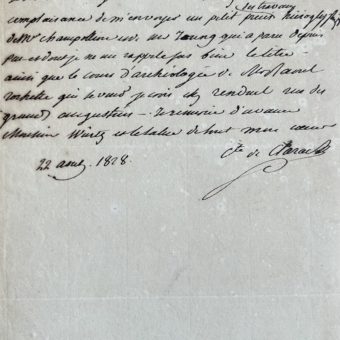 des travaux
complaisance de m'envoyer un petit précis hiérogly
de Mr Champollion et Mr Young qui a paru depuis
peu et dont je ne me rappelle pas bien le titre
ainsi que le cours d'archéologie de Mr Raoul
rochette qui se vend je crois chez renduel rue des
grands augustins - remercie d'avance
Monsieur Wurtz et le salue de tout mon cœur
22 aout 1828.
Cte de Clarac